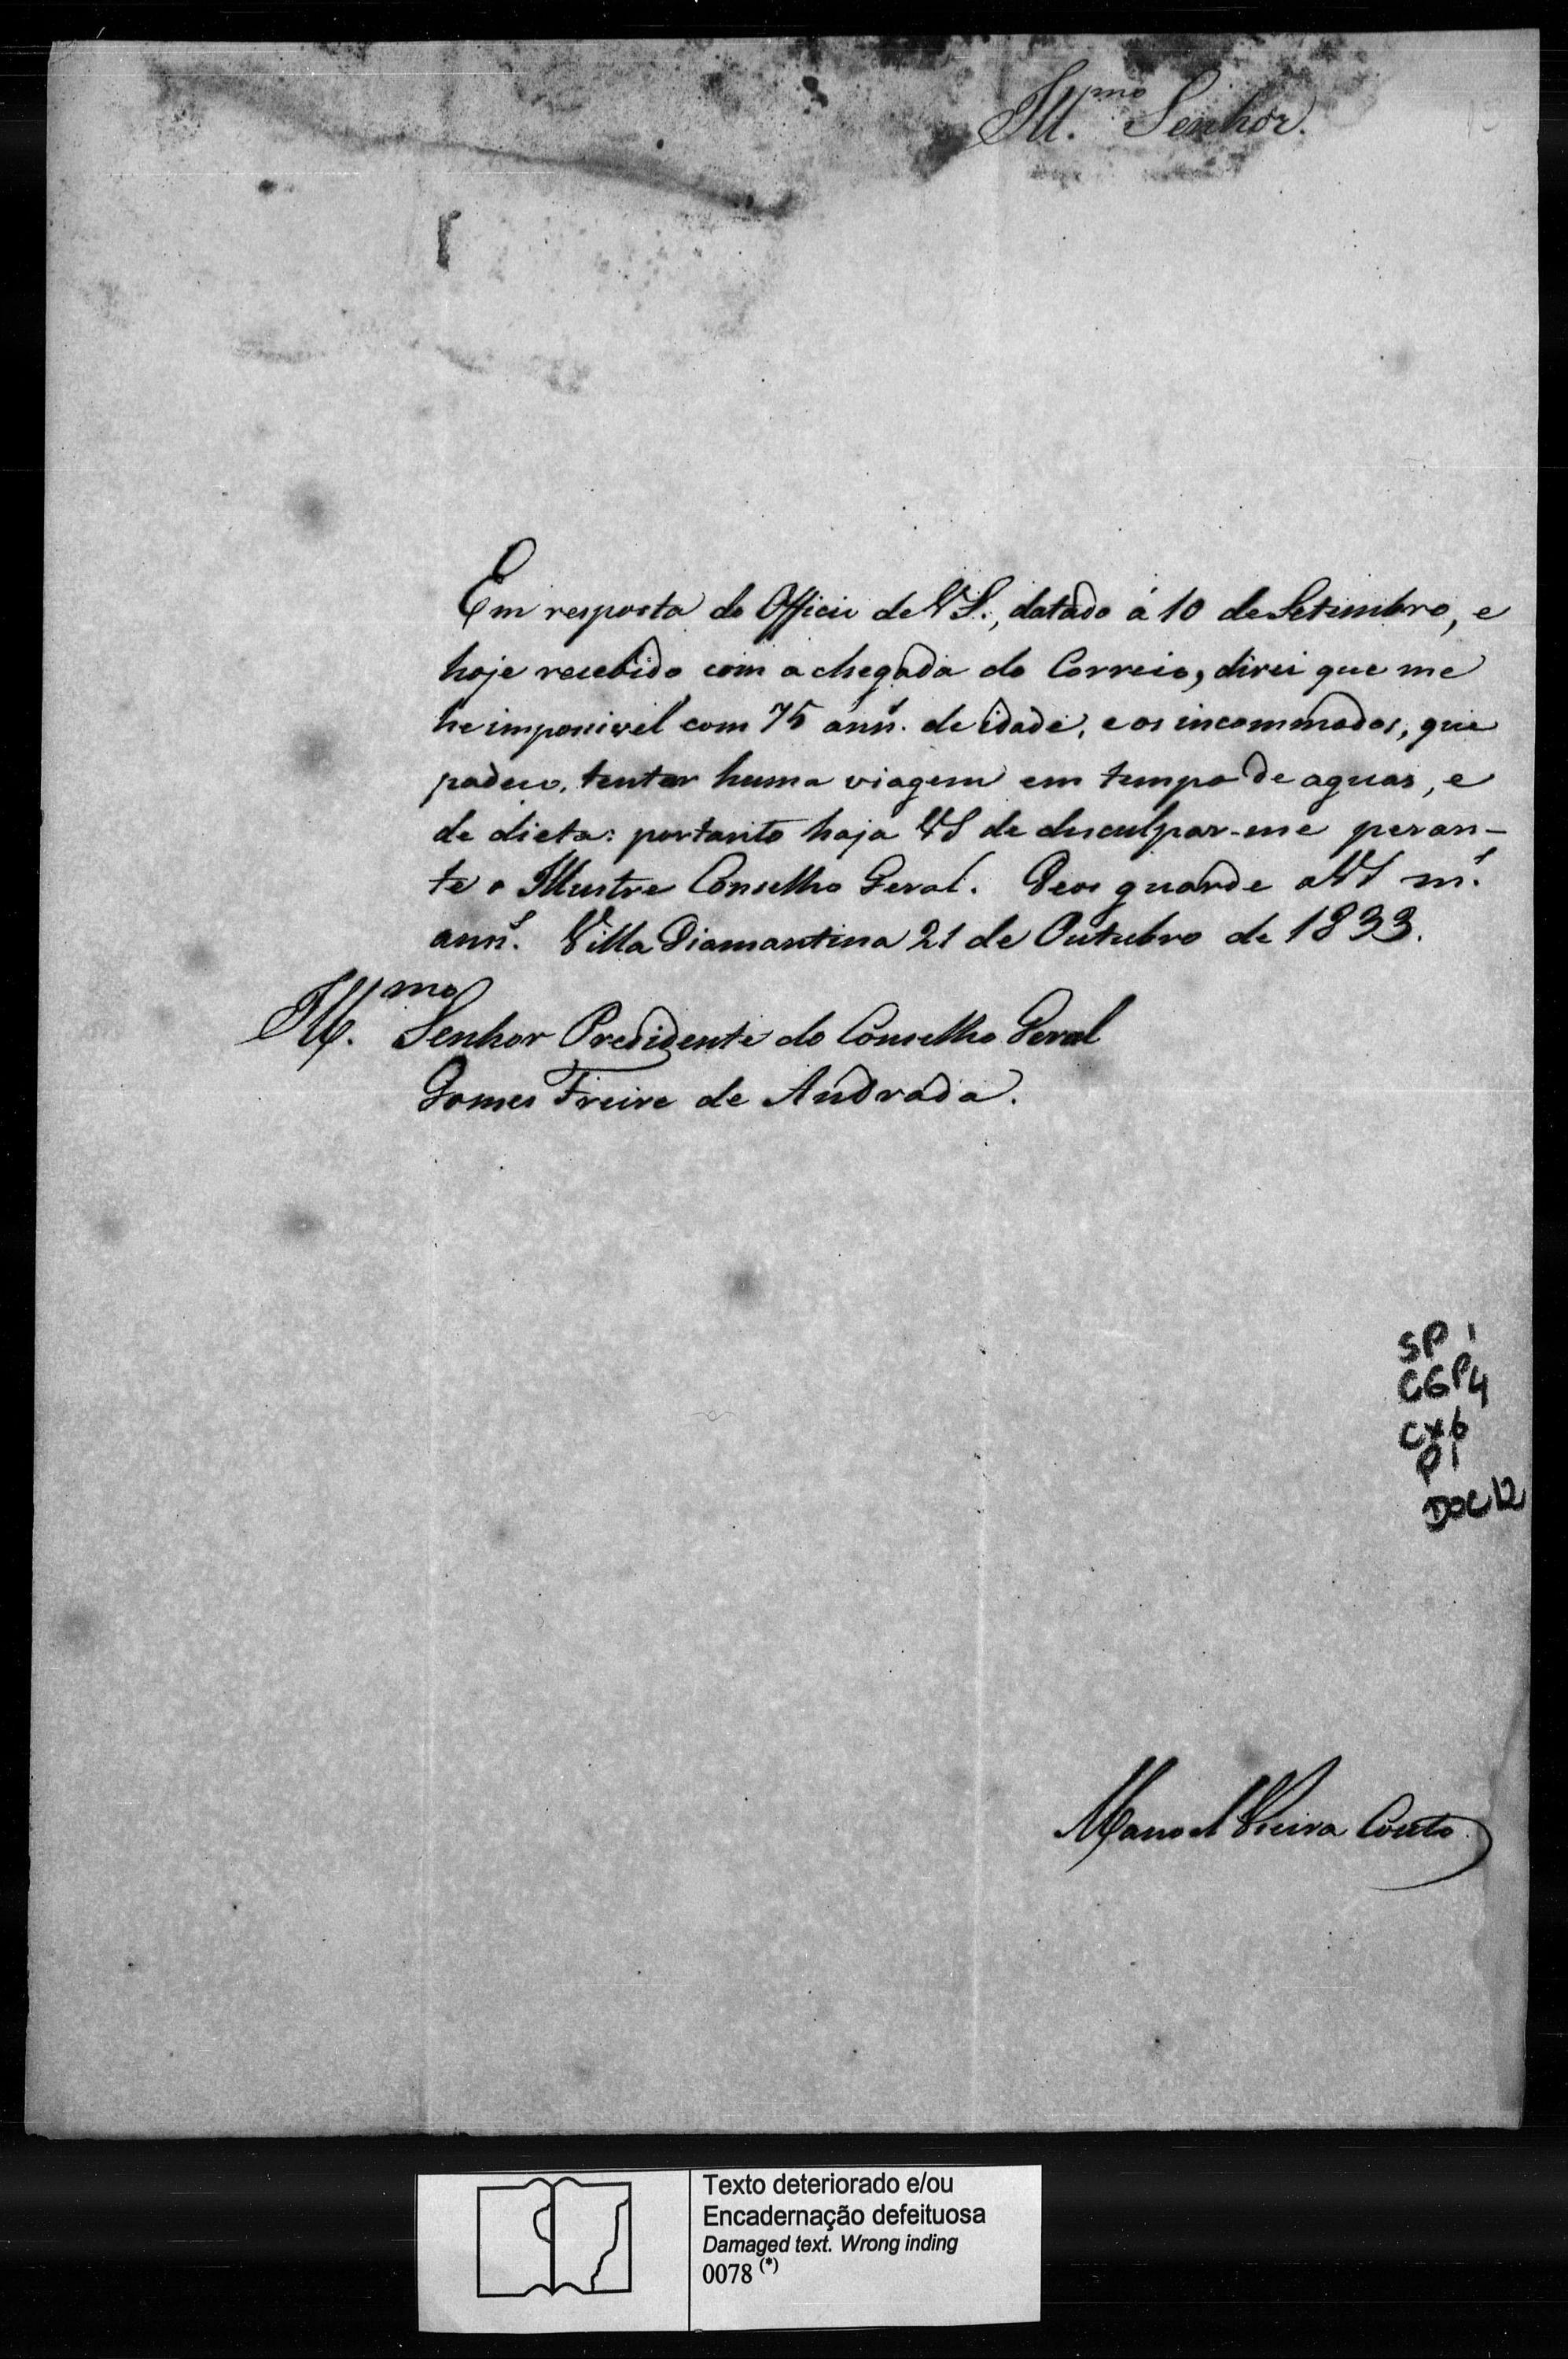 Ill.mo Senhor.
Em resposta do Officio de VS., datado á 10 de Setembro, e
hoje recebido com a chegada do Correio, direi que me
he impossivel com 75 ann.s de idade, e os incommodos, que
padeço, tentar huma viagem em tempo de aguas, e
de dieta: portanto haja VS de desculpar-me peran-
te o Illustre Conselho Geral. Deos guarde a VS m.s
ann.s Villa Diamantina 21 de Outubro de 1833.
Ill.mo Senhor Presidente do Conselho Geral
Gomes Freire de Andrada.
SP 1
CGP4
CX6
P1
DOC12
Manoel Vieira Couto
Texto deteriorado e/ou
Encadernação defeituosa
Damaged text. Wrong inding
0078 (*)